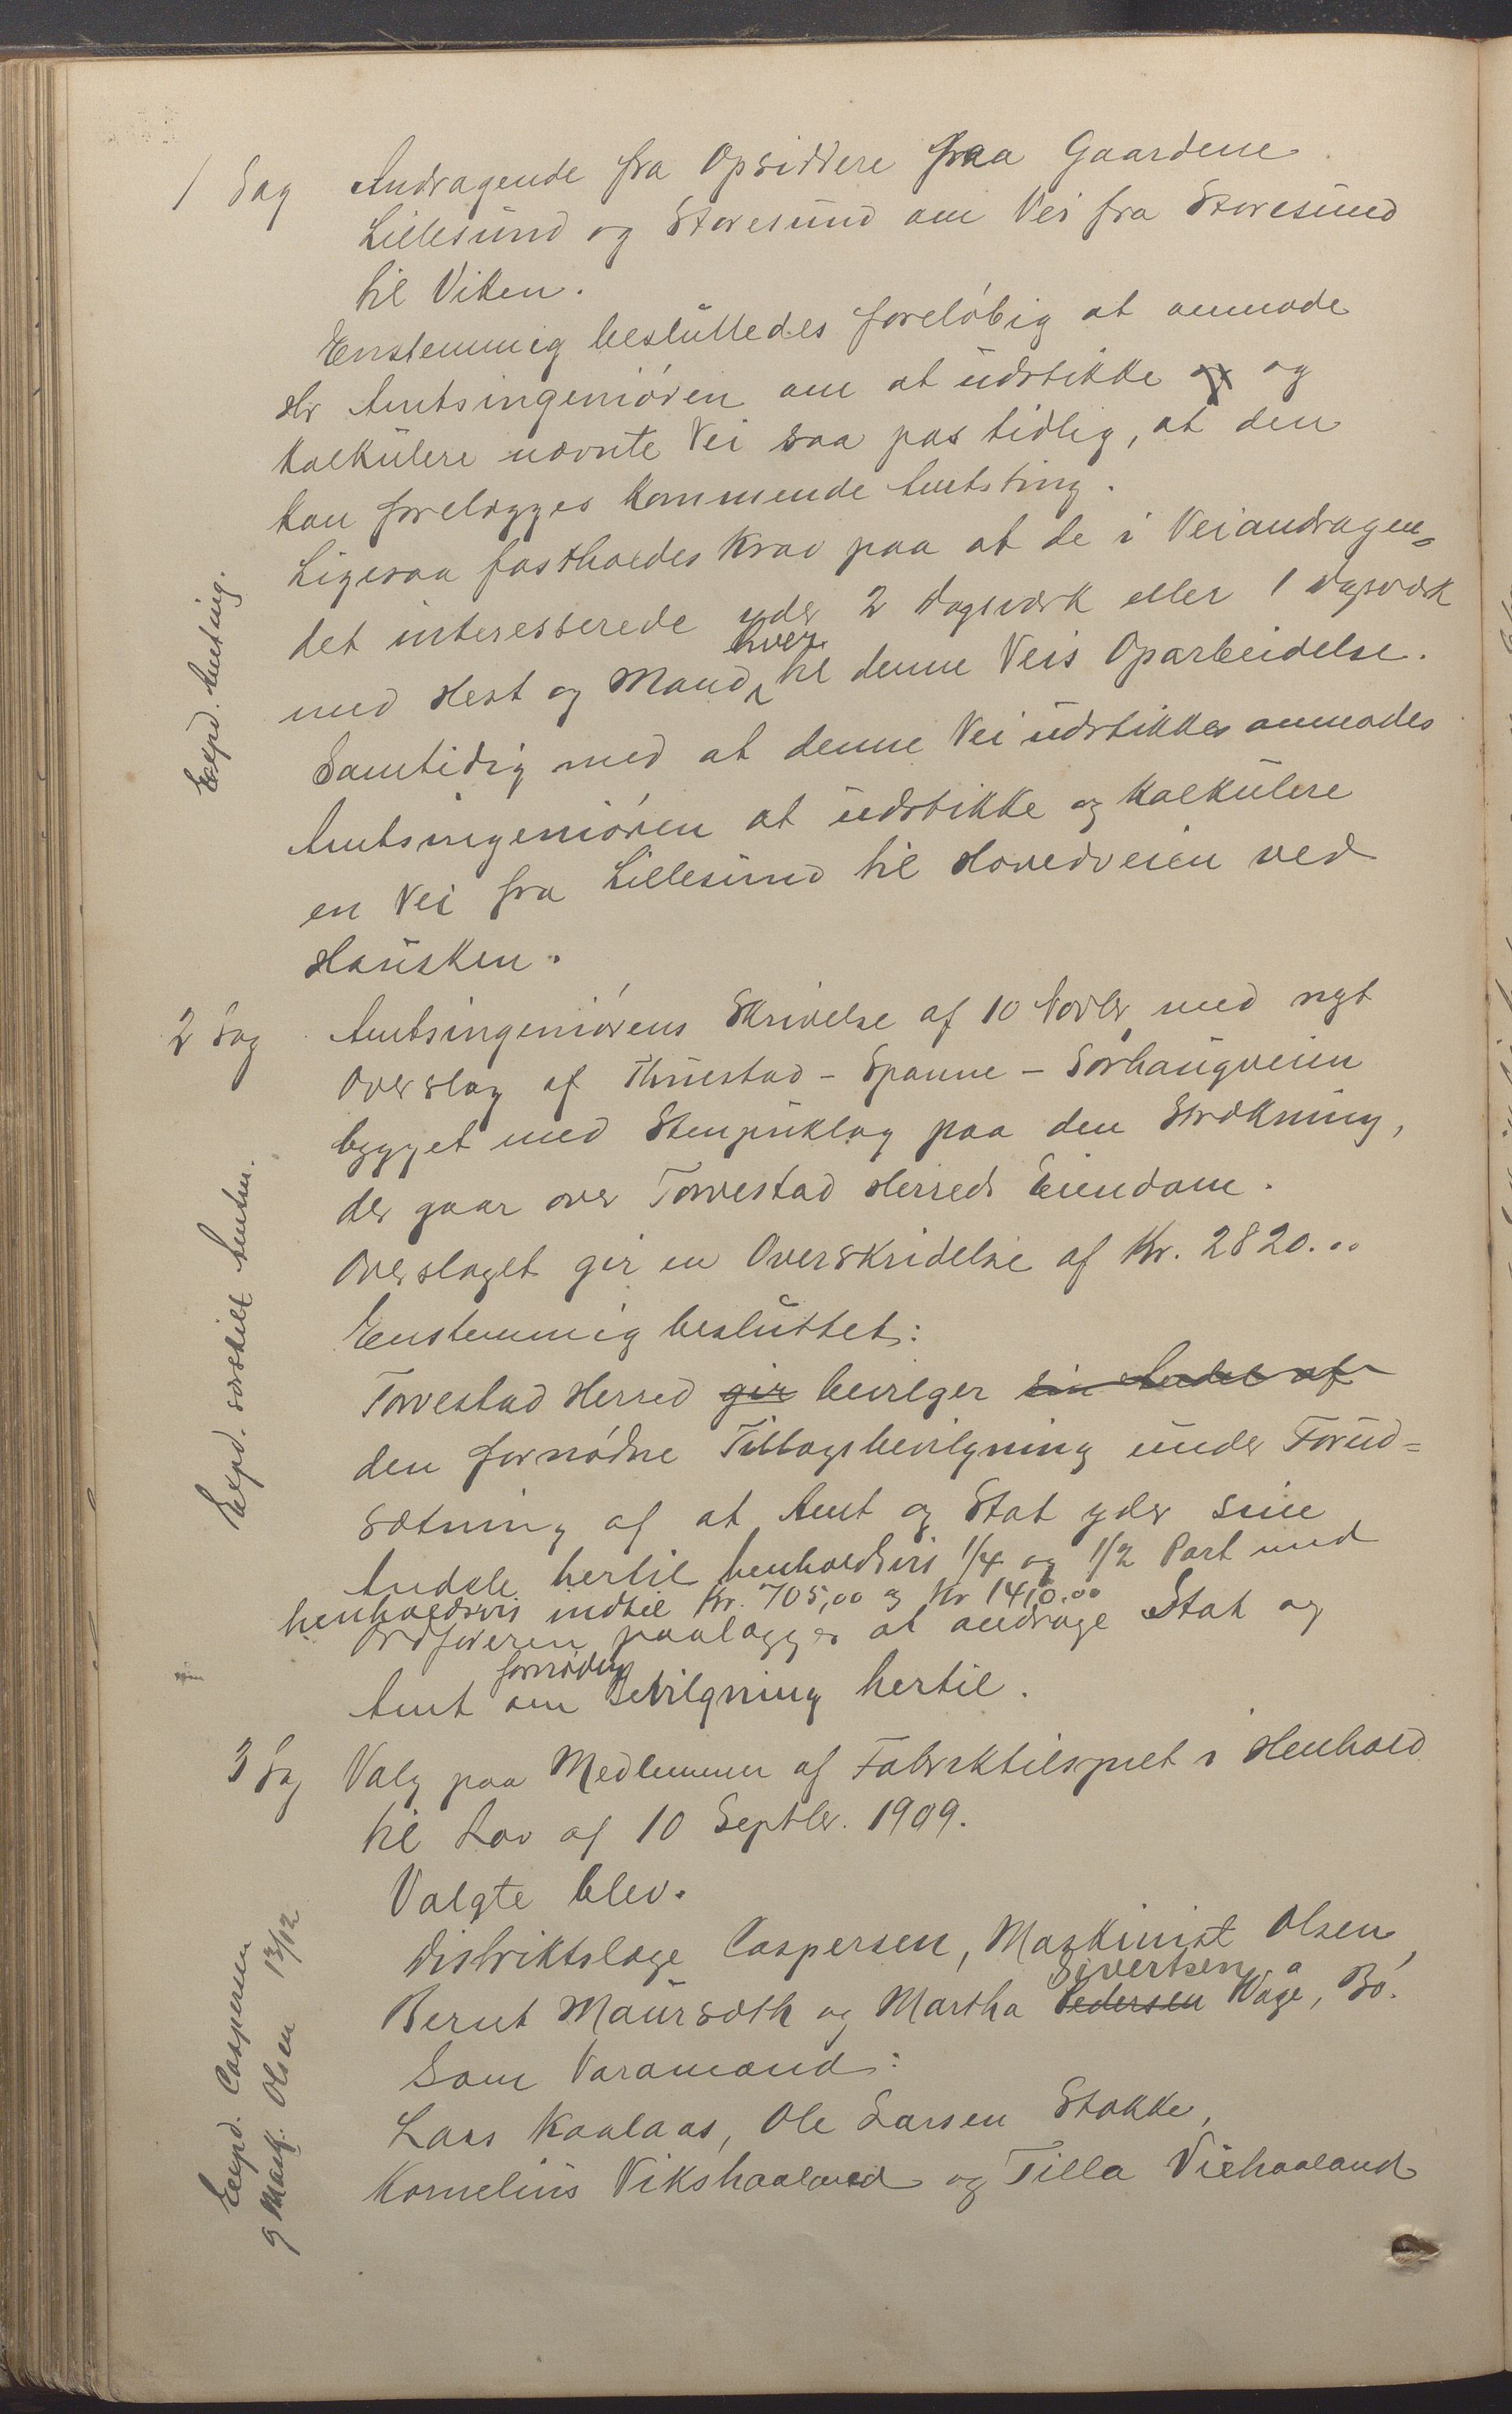 1 Sag Andragende fra Opsiddere fraa Gaardene
Lillesund og Storesund om Vei fra Storesund
til Viken.
Enstemmig besluttedes foreløbig at anmode
Hr Amtsingeniøren om at udstikke og og
kalkulere nævnte Vei saa pas tidlig, at den
kan forelægges kommende Amtsting.
Ligesaa fastholdes Krav paa at de i Veiandragen=
det interesserede yder 2 Dagsværk eller 1 Dagsværk
med Hest og Mand hver til denne Veis Oparbeidelse.
Samtidig med at denne Vei udstikkes anmodes
Amtsingeniøren at udstikke og kalkulere
en Vei fra Lillesund til Hovedveien ved
Hausken.
Expd. Amting.
2 Sag Amtsingeniørens Skrivelse af 10 Novbr med nyt
Overslag af Thuestad - Spanne - Sørhaugveien
bygget med Stenpuklag paa den Strækning,
der gaar over Torvestad Herreds Eiendom.
Overslaget gir en Overskridelse af Kr. 2820.00
Enstemmig besluttet:
Torvestad Herred gir bevilger sin Andel af
den fornødne Tillægsbevilgning under Forud=
sætning af at Amt og Stat yder sine
Andele hertil henholdsvis 1/4 og 1/2 Part med
henholdsvis indtil Kr. 705,00 og Kr 1410.00
Ordføreren paalægges at andrage Stat og
Amt om fornøden Bevilgning hertil.
Expd. særskilt Amtm.
3 Sag Valg paa Medlemmer af Fabriktilsynet i Henhold
til Lov af 10 Septbr. 1909.
Valgte blev.
Distriktslæge Caspersen, Maskinist Olsen,
Bernt Maursæth og Martha Pedersen Sivertsen Våge, Bø.
Som Varamænd:
Lars Kaalaas, Ole Larsen Stakke,
Kornelius Vikshaaland og Tilla Vikhaaland
Expd. Caspersen
og Mask. Olsen 13/12